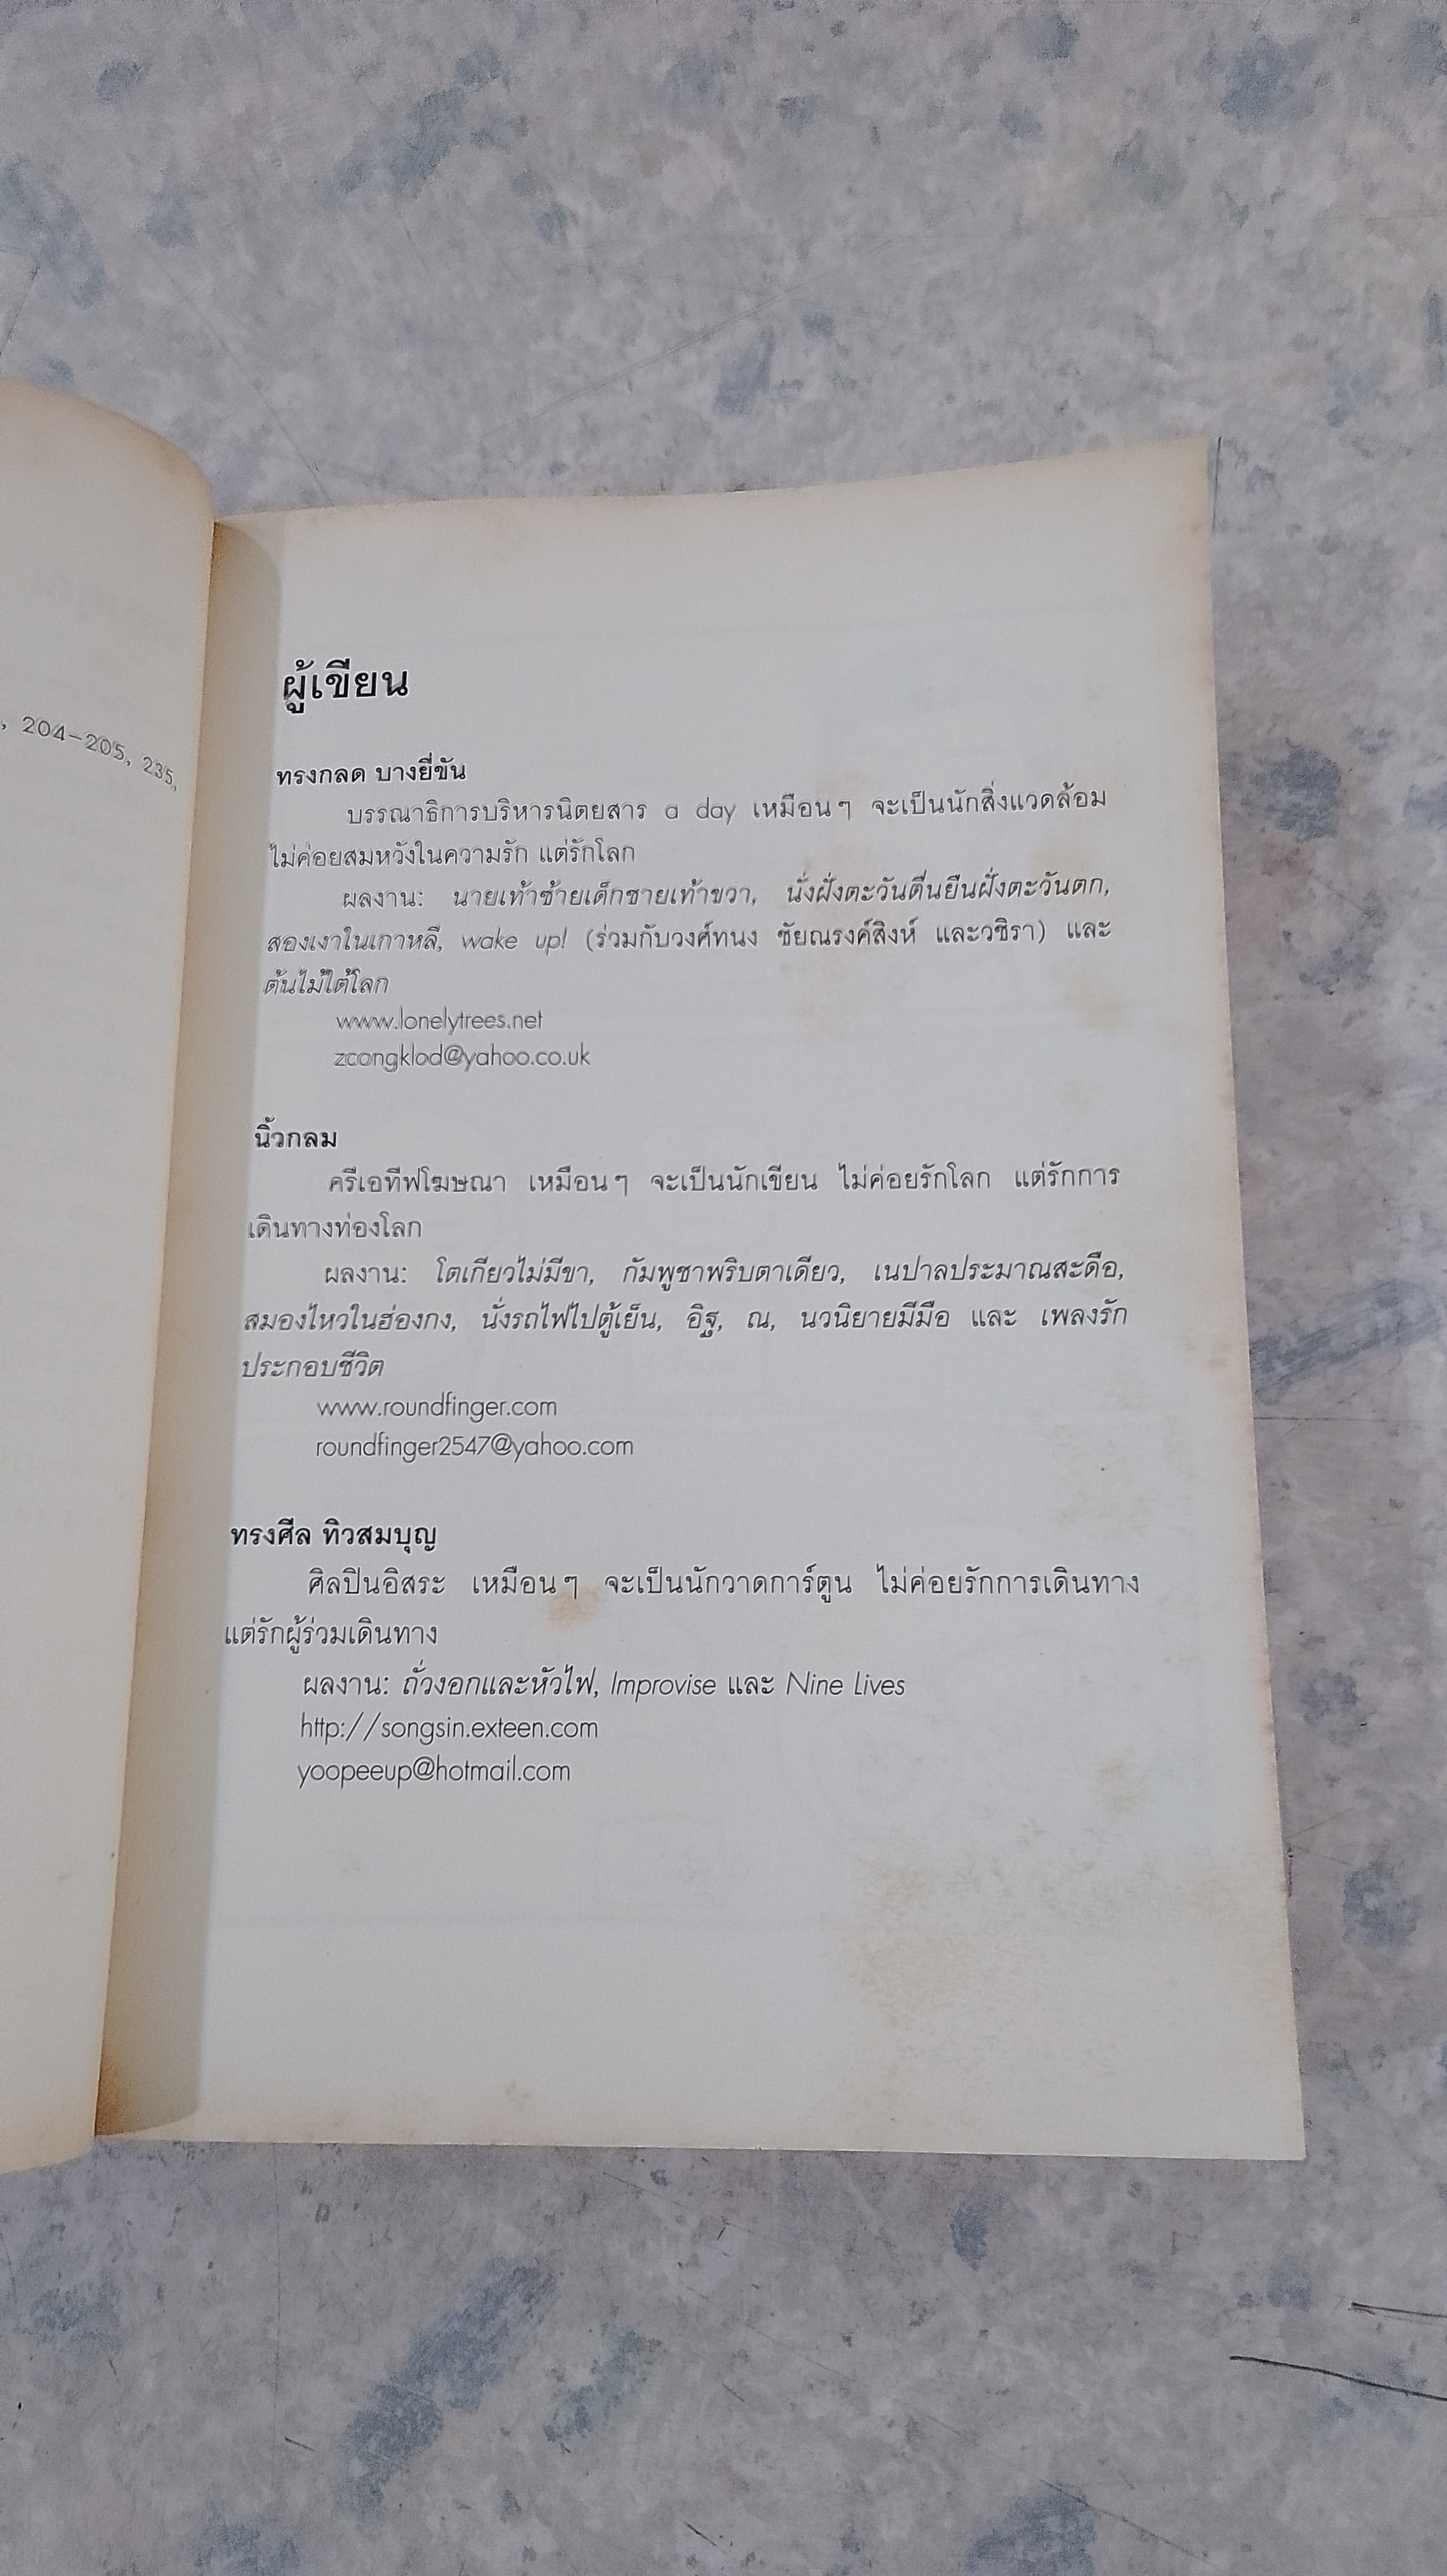 , 204-205, 235,
ผู้เขียน
ทรงกลด บางยี่ขัน
บรรณาธิการบริหารนิตยสาร a day เหมือนๆ จะเป็นนักสิ่งแวดล้อม
ไม่ค่อยสมหวังในความรัก แต่รักโลก
ผลงาน: นายเท้าซ้ายเด็กชายเท้าขวา, นั่งฝั่งตะวันตื่นยืนฝั่งตะวันตก,
สองเงาในเกาหลี, wake up! (ร่วมกับวงศ์ทนง ชัยณรงค์สิงห์ และวชิรา) และ
ต้นไม้ใต้โลก
www.lonelytrees.net
zcongklod@yahoo.co.uk
นิ้วกลม
ครีเอทีฟโฆษณา เหมือนๆ จะเป็นนักเขียน ไม่ค่อยรักโลก แต่รักการ
เดินทางท่องโลก
ผลงาน: โตเกียวไม่มีขา, กัมพูชาพริบตาเดียว, เนปาลประมาณสะดือ,
สมองไหวในฮ่องกง, นั่งรถไฟไปตู้เย็น, อิฐ, ณ, นวนิยายมีมือ และ เพลงรัก
ประกอบชีวิต
www.roundfinger.com
roundfinger2547@yahoo.com
ทรงศีล ทิวสมบุญ
ศิลปินอิสระ เหมือนๆ จะเป็นนักวาดการ์ตูน ไม่ค่อยรักการเดินทาง
แต่รักผู้ร่วมเดินทาง
ผลงาน: ถั่วงอกและหัวไฟ, Improvise และ Nine Lives
http://songsin.exteen.com
yoopeeup@hotmail.com